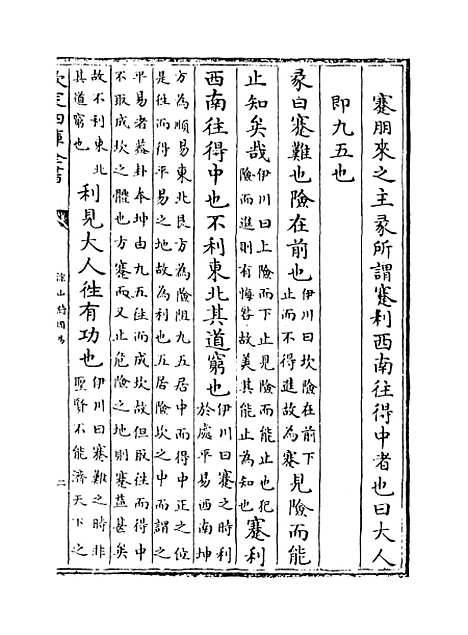 蹇朋來之主彖所謂蹇利西南往得中者也曰大人
即九五也
彖曰蹇難也險在前也伊川曰坎險在前下止而不得進故為蹇見險而能
止知矣哉伊川曰上險而下止見險而能止也犯險而進則有悔咎故美其能止為知也蹇利
西南往得中也不利東北其道窮也伊川曰蹇之時利於處平易西南坤
方為順易東北艮方為險阻九五居中而得中正之位
是往而得平易之地故為利也五居險坎之中而謂之
平易者蓋卦本坤由九五往而成坎故但取往而得中
不取成坎之體也方蹇而又止危險之地則蹇益甚矣
故不利東北其道窮也利見大人往有功也伊川曰蹇難之時非聖賢不能濟天下之
欽定四庫全書
二